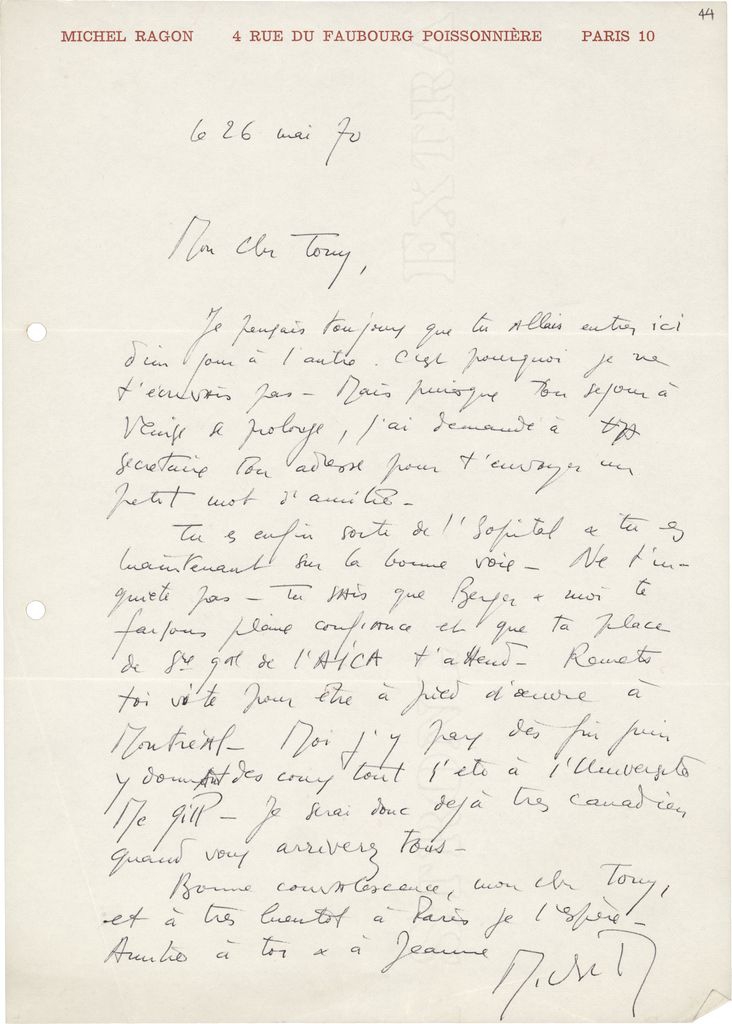 44
MICHEL RAGON 4 RUE DU FAUBOURG POISSONNIÈRE PARIS 10
EXTRA
le 26 mai 70
Mon cher Tony,
Je pensais toujours que tu allais entrer ici
d'un jour à l'autre. C'est pourquoi je ne
t'écrivais pas - Mais puisque ton séjour à
Venise se prolonge, j'ai demandé à ta
secrétaire ton adresse pour t'envoyer un
petit mot d'amitié -
Tu es enfin sorti de l'hôpital & tu es
maintenant sur la bonne voie - Ne t'in-
quiète pas - Tu sais que Berger & moi te
faisons pleine confiance et que ta place
de Sre gal de l'AICA t'attend - Remets
toi vite pour être à pied d'œuvre à
Montréal - Moi j'y pars dès fin juin
y donnant des cours tout l'été à l'Université
Mc Gill - Je serai donc déjà très canadien
quand vous arriverez tous -
Bonne convalescence, mon cher Tony,
et à très bientôt à Paris je l'espère -
Amitiés à toi & à Jeanne
Michel R